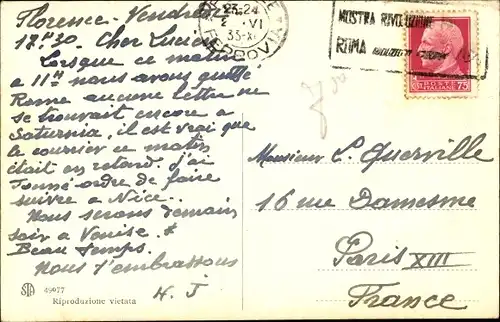 Florence. Vendredi
18h30. Cher Lucien
Lorsque ce matin
à 11h nous avons quitté
Rome aucune lettre ne
se trouvait encore à
Saturnia, il est vrai que
le courrier ce matin
était en retard. J'ai
donné ordre de faire
suivre à Nice..
Nous serons demain
soir à Venise. +
Beau temps.
Nous t'embrassons
H. J
STA 49977
Riproduzione vietata
23-24
VI
35-XI
FERROVIA
MOSTRA RIVOLUZIONE
ROMA
POSTE ITALIANE 75
Monsieur L. Querville
16 rue Damesme
Paris XIII
France